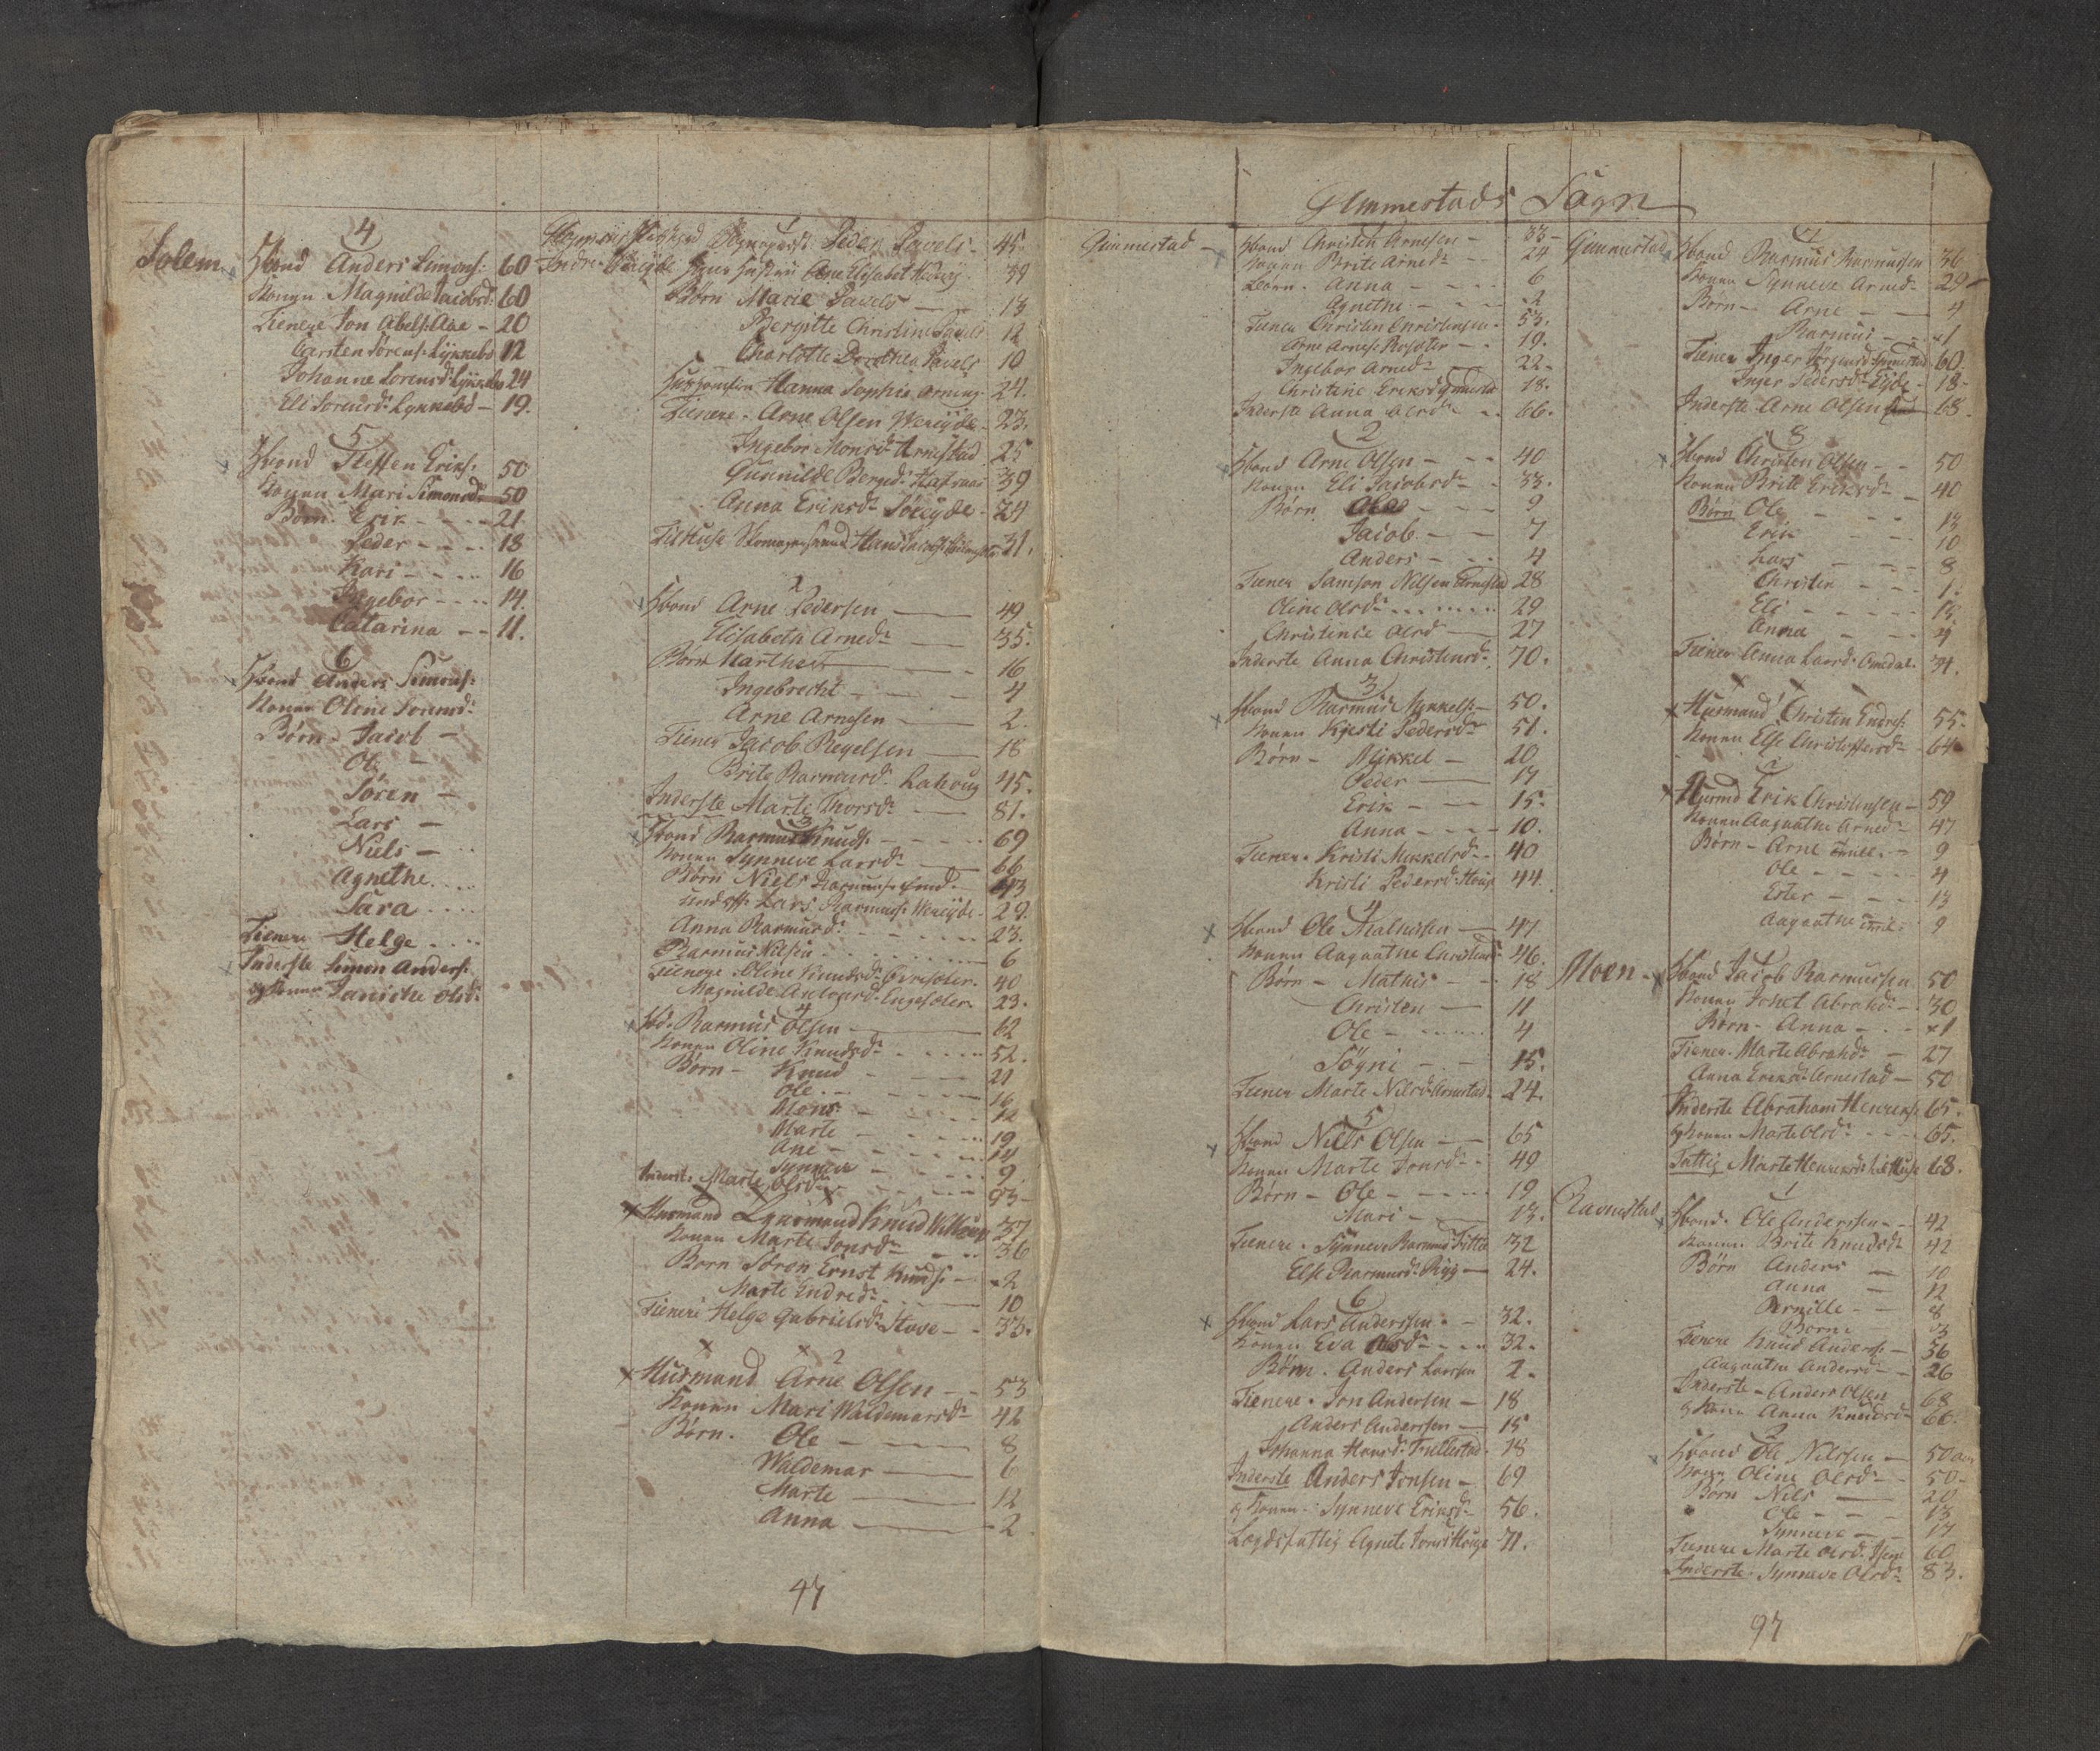 4
Solem Hbond Anders Simons: 60
Konen Magnilde Jacobsd: 60
Tienere Jon Abels: Aae - 20
Carsten Sørens: Lykkebø 12
Johanne Sorensd: 24
Eli Sorensd: Lykkebø - 19.
5
Hbond Steffen Eriks: 50
Konen Mari Simonsd: 50
Børn. Erik - - - 21
Peder - - - 18
Kari - - - 16
Ingebor - - - 14.
Catarina - - 11.
6
Hbond Anders Simons:
Konen Oline Sorensd:
Børn. Jacob -
Ole -
Sören -
Lars -
Niels -
Agnethe. . . .
Sara . . . .
Tienere Helge . . . .
Inderste Simon Anders:
og Konen Olsd:
1
Sognepræst Peder Pavels - 45.
Indre Elisabet Hedvig 39
Børn Marie Pavels - 13
Bergitte Christine Pavels 12
Charlotte Dorothea Pavels 10
Hanna Sophia 24.
Tienere. Arne Olsen Wereyde - 23.
Ingebor Monsd: Arnestad 25
Gunnilde Berned: 39
Anna Eriksd: Söreyde - 24
31.
2
Hbond Arne Pedersen - 49
Elisabeth Arned: - 35.
Børn Marthe - 16
Ingebrecht - 4
Arne Arnesen - 2
Tiener Jacob - 18
Brite Rasmusd. 45.
Inderste Marte Thorsd: - 81.
3
Hbond Rasmus Knuds: - 69
Konen Synneve Larsd: - 66
Børn Niels 43
Lars Rasmus: Wereyde - 29.
Anna Rasmusd: - 23.
Rasmus Nilsen - 6
Tienere. Oline Knudsd: 40
Magnilde 23.
4
Hbd. Rasmus Olsen - 62
Konen Oline Knudsd: - 52.
Børn - Knud - 21
Ole - 16
Mons - 12
Marte - 19
Ane - 14
Synneve - 9
Inderste Marte Olsd: - 93 -
1
Husmand Knud 37
Konen Marte Jonsd: - 36
Børn Sören Ernst Knuds: - 2
Marte Endred: - 10
Tienere Helge Gabrielsd: Hove - 33.
2
Husmand Arne Olsen - 53
Konen Mari Waldemarsd: 42
Børn. Ole - 8
Waldemar - 6
Marte - 12
Anna - 2
47
Gimmestads Sogn
Gimmestad -
1
Hbond Christen Arnesen - 33 -
Konen Brite Arned: - 24
Børn. Anna - 6
Agnethe - 2
Tiener Christen Christensen - 53.
Arne Arnes: - 19.
Ingebor Arned: 22 -
Christine Eriksd: 18.
Inderste Anna Olsd: - 66.
2
Hbond Arne Olsen - 40
Konen Eli Jacobsd: - 33.
Børn - 9
Jacob - 7
Anders - 4
Tiener Samson Nilsen Arnestad 28
Oline Olsd: - 29
Christence Olsd - 27
Inderste Anna Christensd: 70.
3
Hbond Rasmus Mykkels: - 50.
Konen Kjersti Pedersd: 51.
Børn - Mykkel - 20
Peder - 17
Erik - 15.
Anna - 10.
Tiener. Kristi Mikkelsd: - 40
Kristi Pedersd: 44.
4
Hbond Ole Mathisen - 47
Konen Aagaathe Christensd: 46.
Børn - Mathis - 18
Christen - 11
Ole - 4
Sögni - 15.
Tiener Marte Nilsd: Arnestad. 24.
5
Hbond Niels Olsen - 65
Konen Marte Jonsd: - 49
Børn - Ole - 19
Mari - 13.
Tienere. Synneve Rasmusd 32
Else Rasmusd: Rygg - 24.
6
Hbond Lars Andersen. - 32.
Konen Eva Olsd: - 32.
Børn. Anders Larsen 2.
Tienere. Jon Andersen - 18
Anders Andersen - 15
Johanna Hansd: 18
Inderste Anders Jonsen - 69
og Konen - Synneve Eriksd: 56.
Lægdsfattig Agnete Jonsd: Houge 71.
7
Gimmestad Hbond Rasmus Rasmussen 36
Konen Synneve Arned: 29 -
Børn - Arne - 4
Rasmus - 1
Tiener Inger 60.
Inger Pedersd: Eyde - 18 -
Inderste Arne Olsen 68.
8
Hbond Christen Olsen - 50
Konen Brite Eriksd: - 40
Børn Ole - 13
Erik - 10
Lars - 8
Christen - 1.
Eli - 13.
Anna - 4
Tiener Anna Larsd: 34.
1
Husmand Christen Endres: 55.
Konen Else Christoffersd: - 64
2
Husmd Erik Christensen - 59
Konen Aagaathe Arned: - 47
Børn - Arne - 9
Ole - 4
Ester - 13
Aagaathe 9
Moen - Hbond Jacob Rasmussen 50
Konen Abrahd: - 30
Børn - Anna - 1
Tiener. Marte Abrahd: - 27
Anna Eriksd: Arnestad - 50
Inderste Abraham 65.
og Konen Marte Olsd: - 65.
Fattig Marte 68.
1
Ravnestad Hbond. Ole Andersen - 42
Konen. Brite Knudsd: 42
Børn Anders - 10
Anna - 12
Pernille - 8
3
Tienere Knud Anders: - 56
Aagaathe Andersd: - 26
Inderste - Anders Olsen 68
og Konen Anna Knudsd - 66.
2
Hbond Ole Nilssen - 50
Konen Oline Olsd: - 50 -
Børn Nils - 20
Ole - 13
Synneve - 17
Tienere Marte Olsd: 60
Inderste. Synneve Olsd: 83.
97